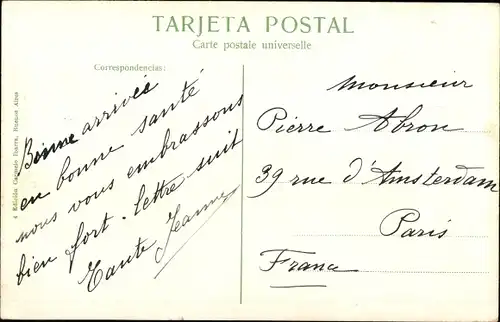 TARJETA POSTAL
Carte postale universelle
Correspondencias:
Bonne arrivée
en bonne santé
nous vous embrassons
bien fort. lettre suit
Tante Jeanne
Monsieur
Pierre Abron
39 rue d'Amsterdam
Paris
France
Buenos Aires